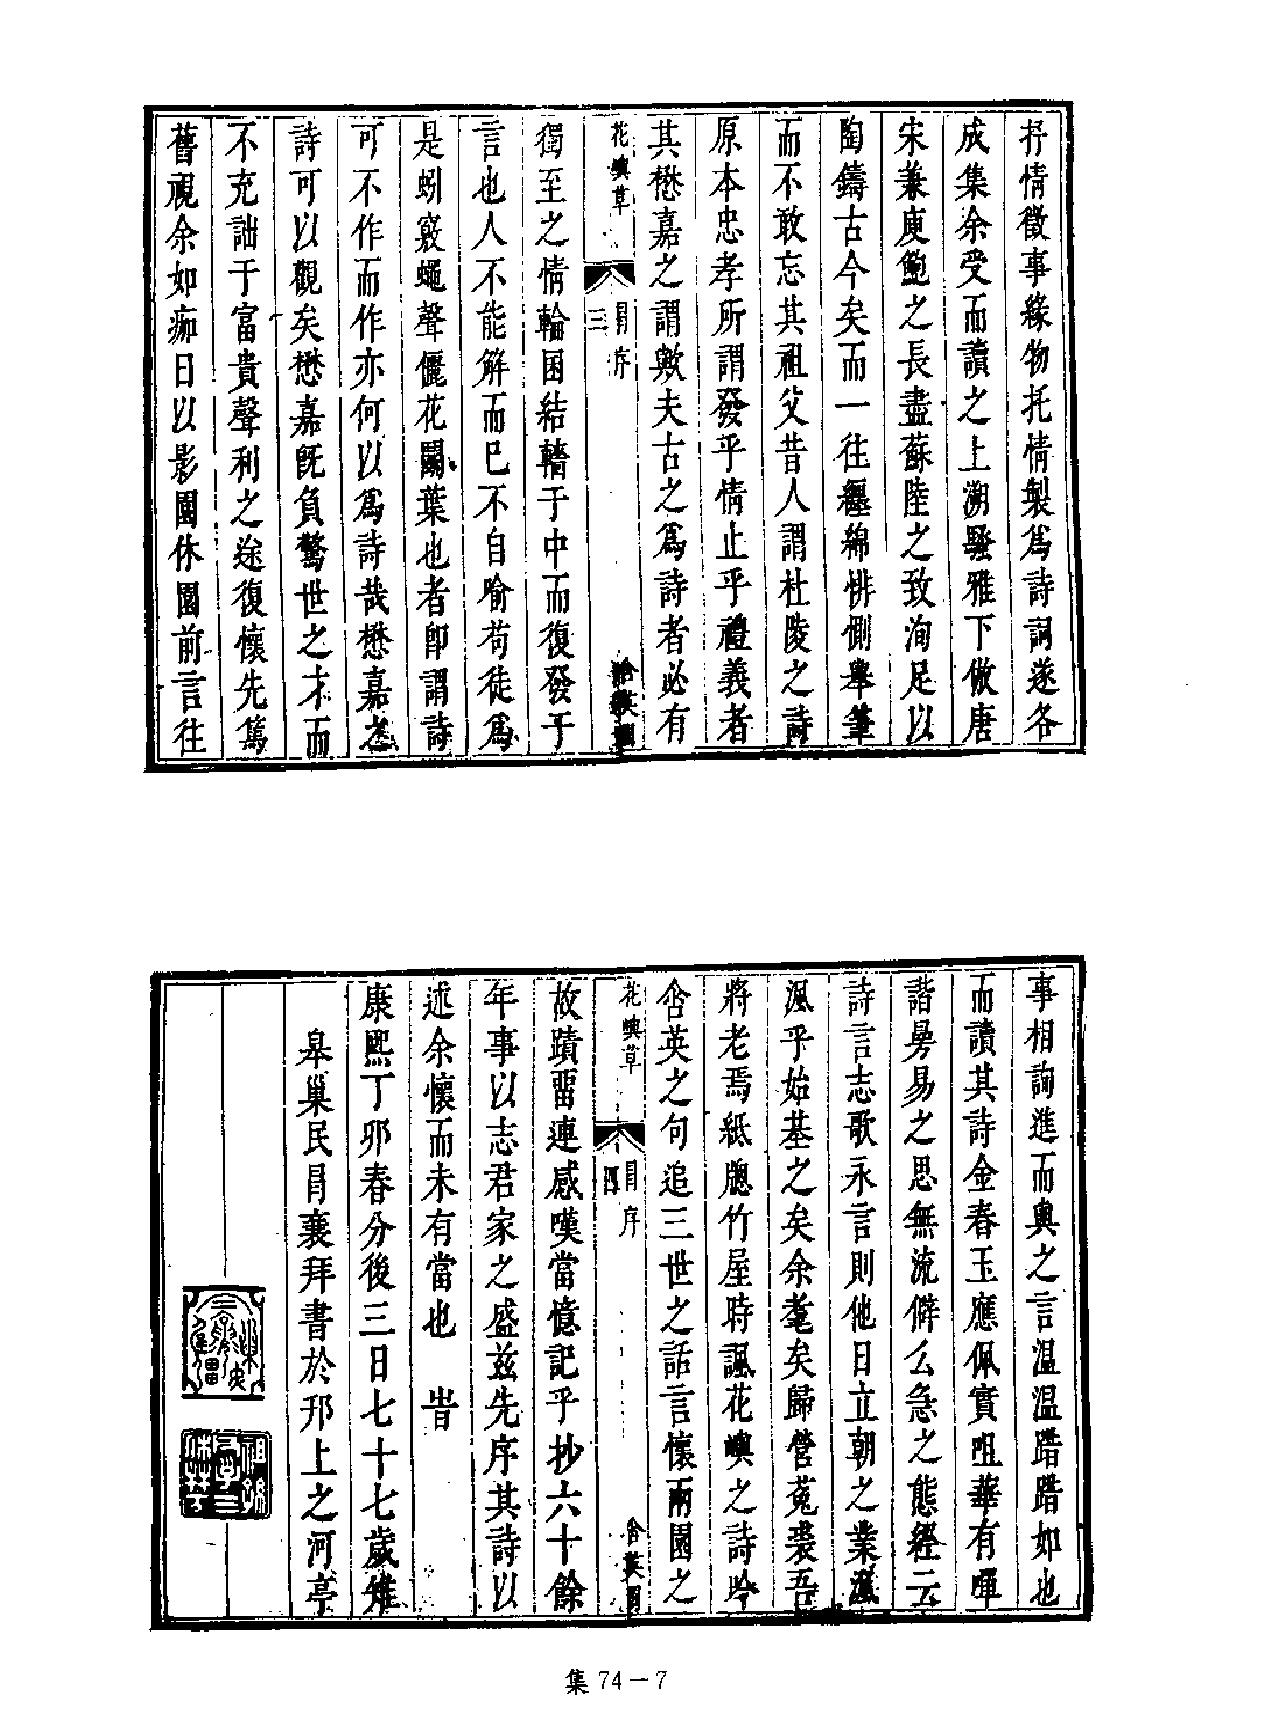 抒情徵事緣物托情製爲詩詞遂各
成集余受而讀之上溯騷雅下倣唐
宋兼庾鮑之長盡蘇陸之致洵足以
陶鑄古今矣而一往纏綿悱惻舉筆
而不敢忘其祖父昔人謂杜陵之詩
原本忠孝所謂發乎情止乎禮義者
其懋嘉之謂歟夫古之爲詩者必有
花嶼草
冒序
三
含英閣
獨至之情輪囷結轖于中而復發于
言也人不能解而巳不自喻苟徒爲
是蚓竅蠅聲儷花鬭葉也者卽謂詩
可不作而作亦何以爲詩哉懋嘉之
詩可以觀矣懋嘉旣負驚世之才而
不充詘于富貴聲利之途復懷先篤
舊視余如痂日以影園休園前言往
事相詢進而與之言温温踖踖如也
而讀其詩金舂玉應佩實咀華有暉
諧昜易之思無流僻么急之態經云
詩言志歌永言則他日立朝之業渢
渢乎始基之矣余耄矣歸營菟裘吾
將老焉紙牕竹屋時諷花嶼之詩吟
含英之句追三世之話言懷兩園之
花嶼草
冒序
四
含英閣
故蹟畱連感嘆當憶記乎抄六十餘
年事以志君家之盛兹先序其詩以
述余懷而未有當也 旹
康熙丁卯春分後三日七十七歲雉
皋巢民冒襄拜書於邗上之河亭
集 74－7